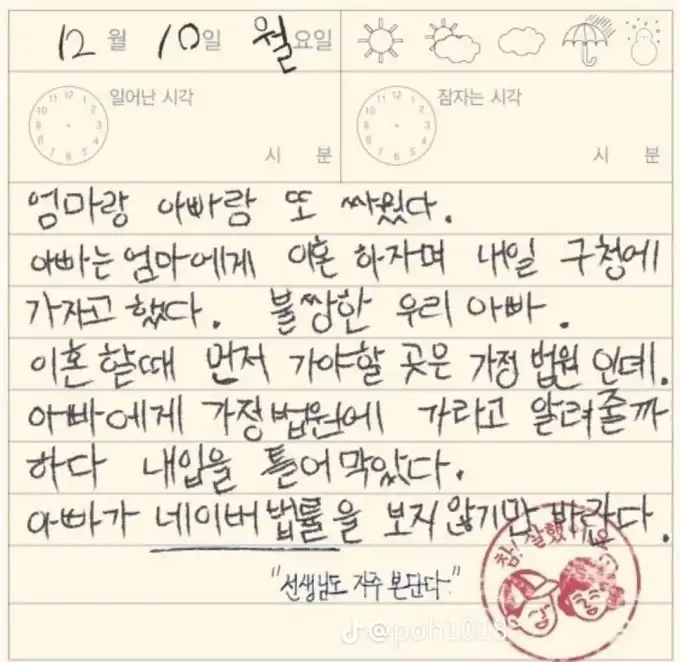 12월 10일 월요일
일어난 시각
시 분
잠자는 시각
시 분
엄마랑 아빠랑 또 싸웠다.
아빠는 엄마에게 이혼 하자며 내일 구청에
가자고 했다. 불쌍한 우리 아빠.
이혼 할때 먼저 가야할 곳은 가정 법원 인데.
아빠에게 가정법원에 가라고 알려줄까
하다 내입을 틀어막았다.
아빠가 네이버 법률을 보지 않기만 바란다.
참! 잘했어요
"선생님도 자주 본단다."
@poh1018